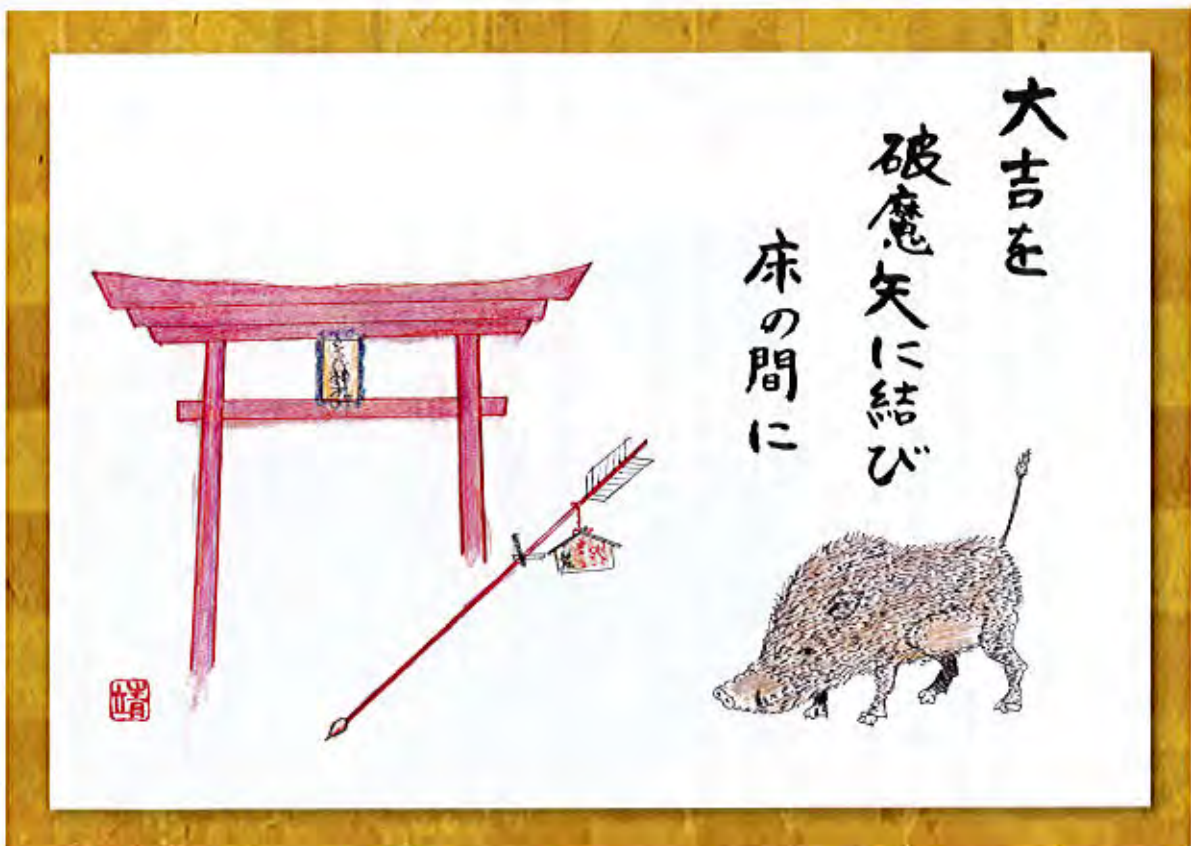 大吉を
破魔矢に結び
床の間に
靖